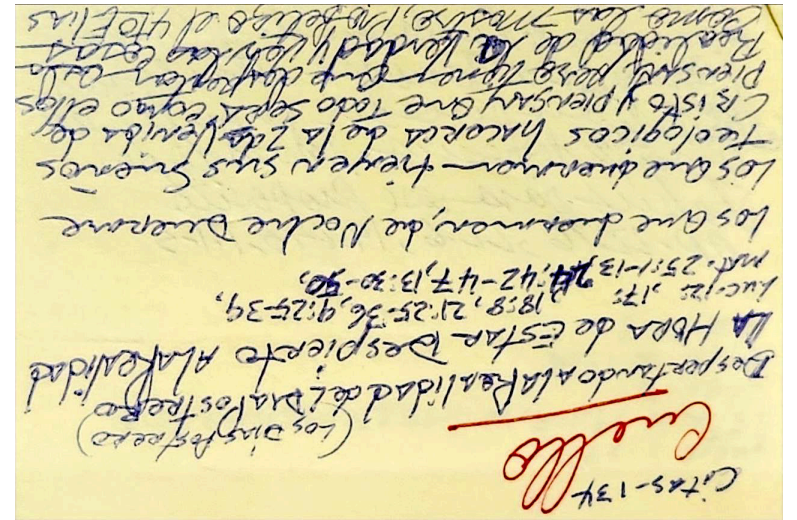 Citas-134
Cuello
(Los Dias Postrero)
Despertando a la Realidad del Dia Postrero
La Hora de Estar Despierto A la Realidad
Luc. 12:, 17: 18:8, 21:25-36, 9:25-39,
Mat. 25:1-13, 24:42-47, 13:30-50,
Los que duermen, de Noche Duerme
Los que duermen tienen sus sueños
Teologicos hacerca de la 2da Venida de
Cristo y piensan que todo sera como ellos
Piensan, pero tienen que despertar a la
Realidad de la Verdad y ver las cosas
Como las mostro, Profetizo el 4to Elias